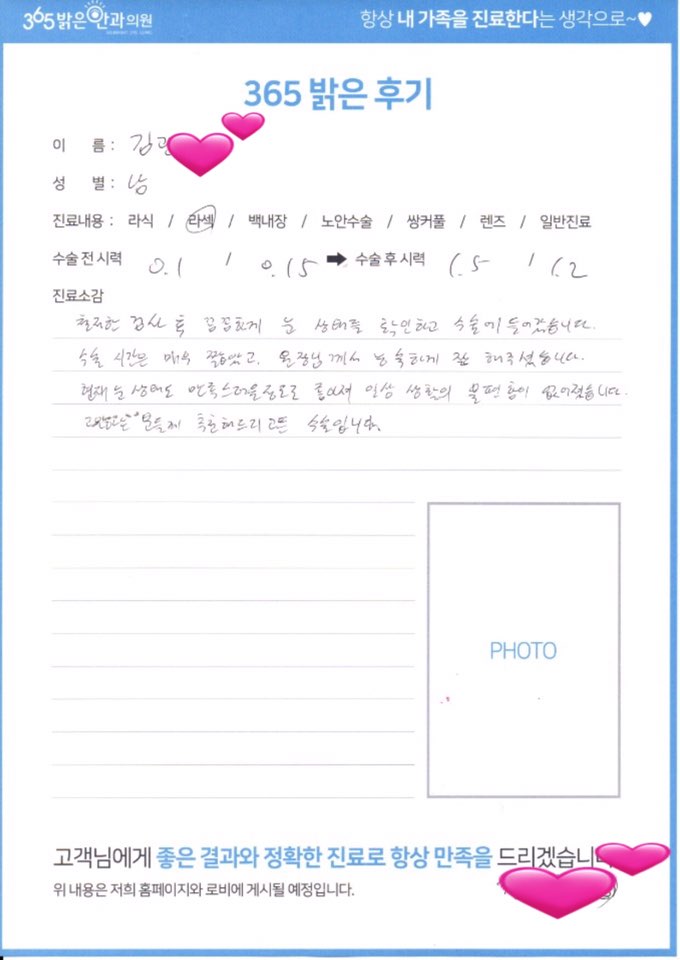 365밝은안과의원
항상 내 가족을 진료한다는 생각으로~♥
365 밝은 후기
이 름 : 김
성 별 : 남
진료내용 : 라식 / 라섹 / 백내장 / 노안수술 / 쌍커풀 / 렌즈 / 일반진료
수술 전 시력 0.1 / 0.15 ➡ 수술 후 시력 1.5 / 1.2
진료소감
철저한 검사 후 꼼꼼하게 눈 상태를 확인하고 수술에 들어갔습니다.
수술 시간은 매우 짧았고, 원장님께서 능숙하게 잘 해주셨습니다.
현재 눈 상태도 만족스러운 정도로 좋아져 일상 생활의 불편함이 없어졌습니다.
모든분들께 추천해드리고픈 수술입니다.
PHOTO
고객님에게 좋은 결과와 정확한 진료로 항상 만족을 드리겠습니
위 내용은 저희 홈페이지와 로비에 게시될 예정입니다.